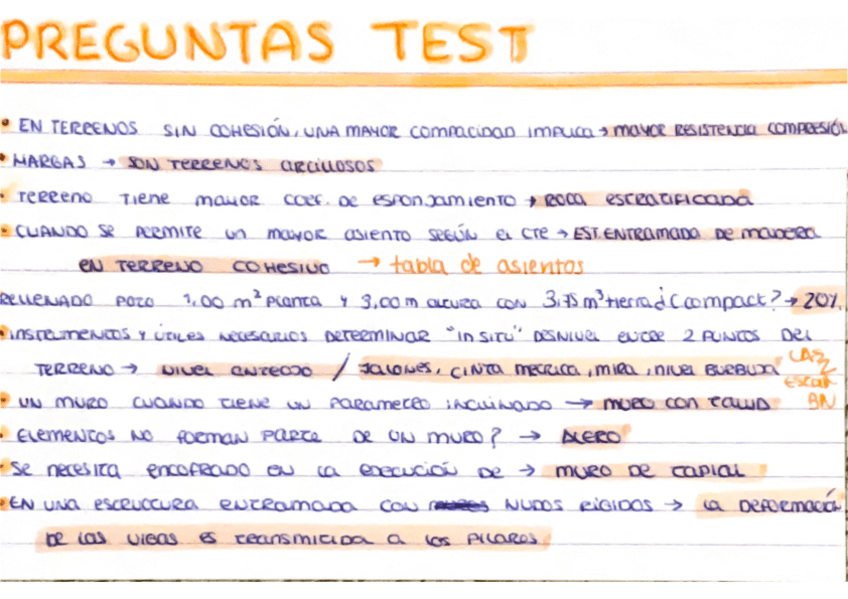 PREGUNTAS TEST
• EN TERRENOS SIN COHESIÓN, UNA MAYOR COMPACIDAD IMPLICA → MAYOR RESISTENCIA COMPRESIÓN
• MARGAS → SON TERRENOS ARCILLOSOS
• TERRENO TIENE MAYOR COEF. DE ESPONJAMIENTO → ROCA ESTRATIFICADA
• CUANDO SE PERMITE UN MAYOR ASIENTO SEGÚN EL CTE → EST. ENTRAMADA DE MADERA
EN TERRENO COHESIVO → tabla de asientos
RELLENADO POZO 1,00 m² PLANTA Y 3,00 m ALTURA CON 3,75 m³ tierra ¿C compact? → 20%
• INSTRUMENTOS Y ÚTILES NECESARIOS DETERMINAR "IN SITU" DESNIVEL ENTRE 2 PUNTOS DEL
TERRENO → NIVEL ANTEOJO / JALONES, CINTA METRICA, MIRA, NIVEL BURBUJA LAS 2 estan BN
• UN MURO CUANDO TIENE UN PARAMETRO INCLINADO → MURO CON TALUD
• ELEMENTOS NO FORMAN PARTE DE UN MURO? → ALERO
• SE NECESITA ENCOFRADO EN LA EJECUCIÓN DE → MURO DE TAPIAL
• EN UNA ESTRUCTURA ENTRAMADA CON NUDOS RIGIDOS → LA DEFORMACIÓN
DE LAS VIGAS ES TRANSMITIDA A LOS PILARES.